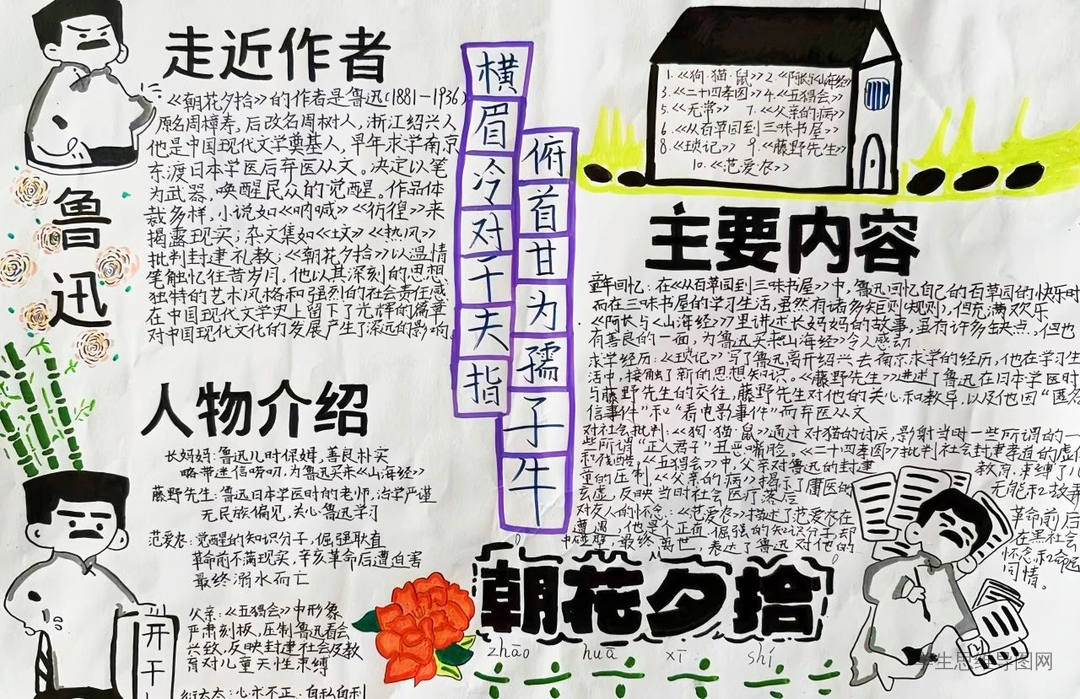 走近作者
《朝花夕拾》的作者是鲁迅(1881-1936)
原名周樟寿,后改名周树人,浙江绍兴人
他是中国现代文学奠基人,早年求学南京
东渡日本学医后弃医从文。决定以笔
为武器,唤醒民众的觉醒。作品体
裁多样,小说如《呐喊》《彷徨》来
揭露现实;杂文集如《坟》《热风》
批判封建礼教;《朝花夕拾》以温情
笔触忆往昔岁月,他以其深刻的思想
独特的艺术风格和强烈的社会责任感
在中国现代文学史上留下了光辉的篇章
对中国现代文化的发展产生了深远的影响
鲁迅
人物介绍
长妈妈:鲁迅儿时保姆,善良朴实
略带迷信唠叨,为鲁迅买来《山海经》
藤野先生:鲁迅日本学医时的老师,治学严谨
无民族偏见,关心鲁迅学习
范爱农:觉醒的知识分子,倔强耿直
革命前不满现实,辛亥革命后遭迫害
最终溺水而亡
父亲:《五猖会》中形象
严肃刻板,压制鲁迅看会
兴致,反映封建社会及教
育对儿童天性束缚
衍太太:心术不正,自私自利
开
横眉冷对千夫指
俯首甘为孺子牛
1.《狗·猫·鼠》2.《阿长与山海经》
3.《二十四孝图》4.《五猖会》
5.《无常》 7.《父亲的病》
6.《从百草园到三味书屋》
8.《琐记》 9.《藤野先生》
10.《范爱农》
主要内容
童年回忆:在《从百草园到三味书屋》中,鲁迅回忆自己的百草园的快乐时
而在三味书屋的学习生活,虽然有诸多矩则规则,但充满欢乐
《阿长与《山海经》》里讲述长妈妈的故事,虽有许多缺点,但也
有善良的一面,为鲁迅买来《山海经》令人感动
求学经历:《琐记》写了鲁迅离开绍兴去南京求学的经历,他在学习生
活中,接触了新的思想知识。《藤野先生》讲述了鲁迅在日本学医时
与藤野先生的交往,藤野先生对他的关心和教导,以及他因“匿名
信事件”和“看电影事件”而弃医从文
对社会批判:《狗·猫·鼠》通过对猫的讨厌,影射当时一些所谓的一
些所谓“正人君子”丑恶嘴脸。《二十四孝图》批判社会封建孝道的虚伪
《五猖会》中,父亲对鲁迅的封建教育,束缚了儿
重的压制。《父亲的病》揭示了庸医的无能和故弄
玄虚,反映当时社会医疗落后
对友人的怀念:《范爱农》描述了范爱农在革命前后
遭遇,他是个正直、倔强的知识分子,却在黑社会
中碰壁,最终离世,表达了鲁迅对他的怀念和命运
同情。
朝花夕拾
zhāo huā xī shí
生思维导图网